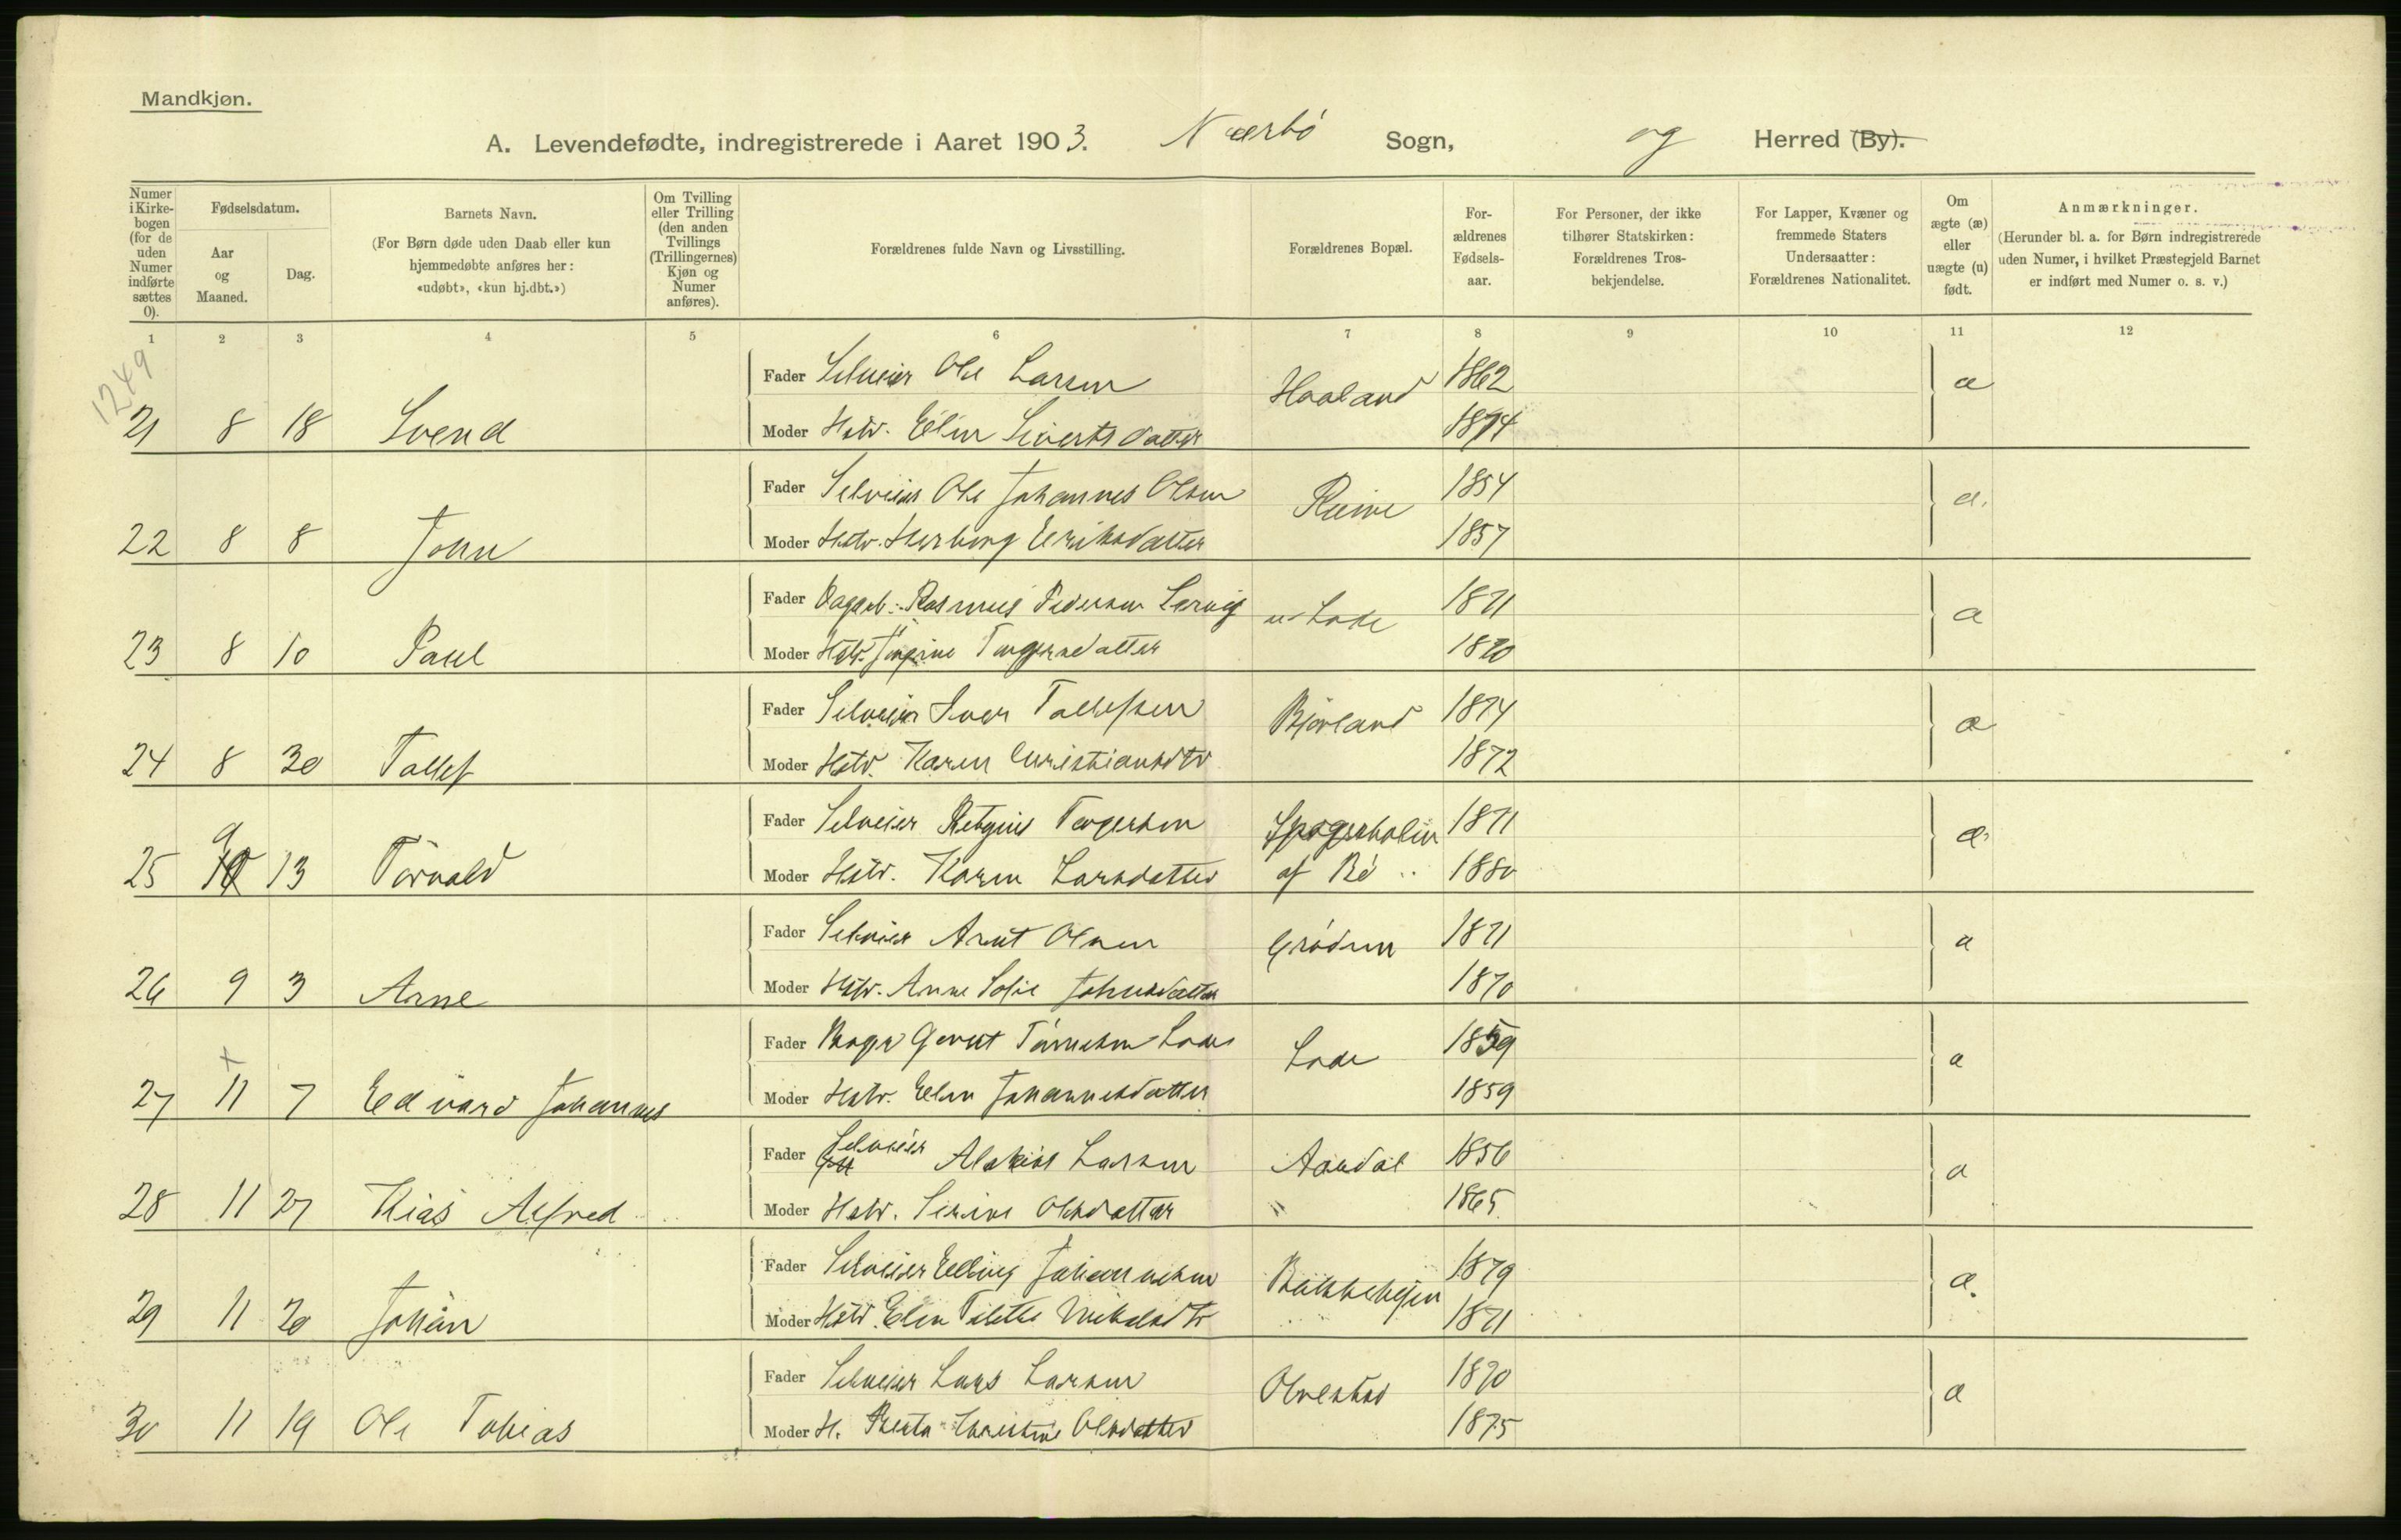 Mandkjøn.
A. Levendefødte, indregistrerede i Aaret 1903. Nærbö Sogn, og Herred (By).
Numer i Kirkebogen (for de uden Numer indførte sættes 0).
Fødselsdatum.
Aar og Maaned.
Dag.
Barnets Navn.
(For Børn døde uden Daab eller kun hjemmedøbte anføres her: «udøbt», «kun hj.dbt.»)
Om Tvilling eller Trilling (den anden Tvillings (Trillingernes) Kjøn og Numer anføres).
Forældrenes fulde Navn og Livsstilling.
Forældrenes Bopæl.
Forældrenes Fødselsaar.
For Personer, der ikke tilhører Statskirken: Forældrenes Trosbekjendelse.
For Lapper, Kvæner og fremmede Staters Undersaatter: Forældrenes Nationalitet.
Om ægte (æ) eller uægte (u) født.
Anmærkninger.
(Herunder bl. a. for Børn indregistrerede uden Numer, i hvilket Præstegjeld Barnet er indført med Numer o. s. v.)
1 2 3 4 5 6 7 8 9 10 11 12
1249
Fader Selveier Ole Larsen Haaland 1862 æ
21 8 18 Svend Moder Hstr. Elen Sivertsdatter 1874
Fader Selveier Ole Johannes Olsen 1854 æ.
22 8 8 John Moder Hstr. Herborg Eriksdatter 1857
Fader Rasmus Pedersen Lode 1871 æ
23 8 10 Paul Moder Hstr. 1870
Fader Selveier Iver Tollefsen Bjorland 1874 æ
24 8 30 Tollef Moder Hstr. Karen Christiansdtr 1872
Fader Selveier Torgersen 1871 æ
25 9 13 Torvald Moder Hstr. Karen Larsdatter af Bö 1880
Fader Selveier Arnt Olsen Grödem 1871 æ
26 9 3 Arne Moder Hstr. Anne Sofie Johnsdatter 1870
Fader Gerut Tönnesen Lode Lode 1859 æ
27 11 7 Edvard Johannes Moder Hstr. Elen Johannesdatter 1859
Fader Selveier Larsen Aandal 1856 æ
28 11 27 Kias Alfred Moder Hstr. Serine Olsdatter " 1865
Fader Selveier Elling Johannesen 1879 æ.
29 11 20 Johan Moder Hstr. Elen Tilette Mikalsdtr 1871
Fader Selveier Lars Larsen Obrestad 1870 æ
30 11 19 Ole Tobias Moder H. Berta Christine Olsdatter 1875